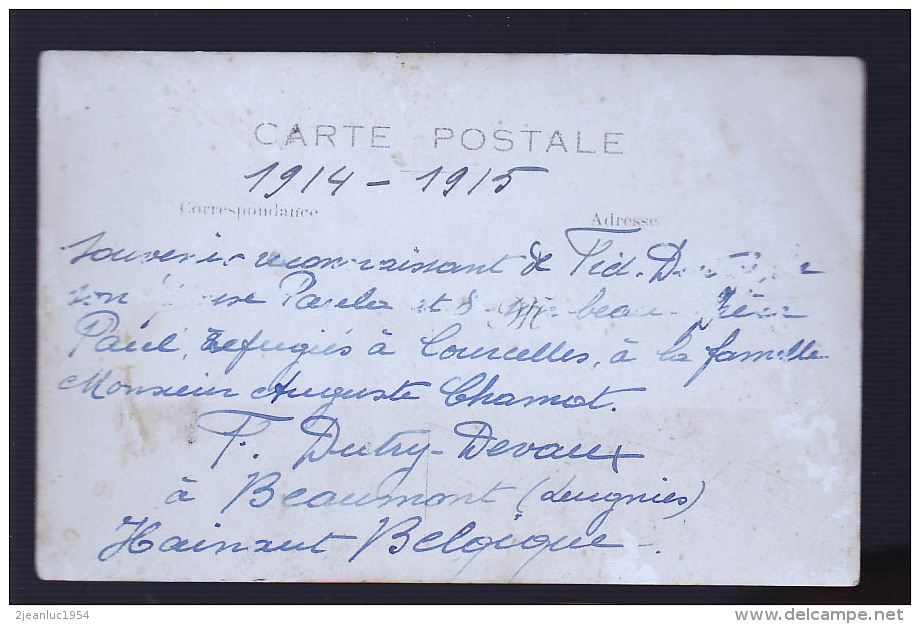 CARTE POSTALE
1914 - 1915
Correspondance
Adresse
Souvenir reconnaissant de Fid.
son Paula et beau-frère
Paul, Réfugiés à Courcelles, à la famille
Monsieur Auguste Chamot.
F. Dutry-Devaux
à Beaumont (Leugnies)
Hainaut Belgique.
2jeanluc1954
www.delcampe.net